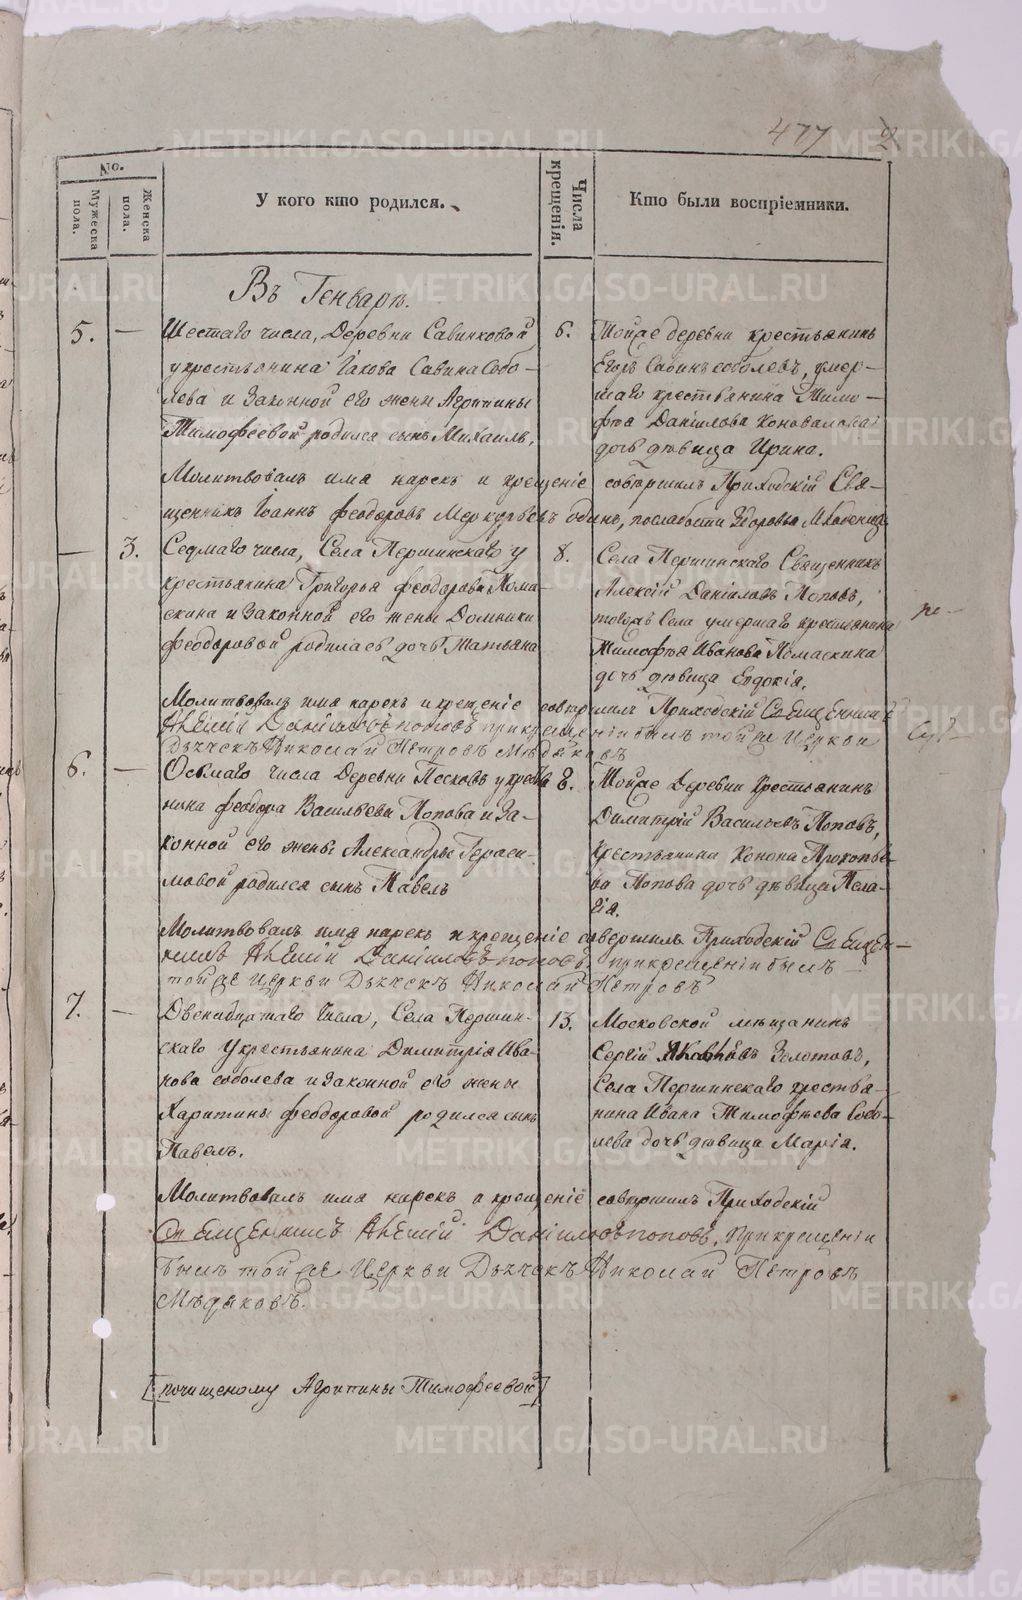 477
No.
Мужеска пола.
Женска пола.
У кого кто родился.
Числа крещенія.
Кто были воспріемники.
Въ Генварѣ.
5. — Шестаго числа, Деревни Савинковой
у крестьянина Іакова Савина Собо-
лева и законной его жены Агрипины
Тимофеевой родился сынъ Михаилъ,
6. Тойже деревни крестьянинъ
Егоръ Савинъ соболевъ, умер-
шаго крестьянина Тимо-
фѣя Данилова Коновалова
дочь дѣвица Ирина.
Молитвовалъ имя нарекъ и крещеніе совершилъ Приходскій Свя-
щенникъ Іоаннъ Феодоровъ Меркурьевъ одинъ, послабости здоровья Младенца
— 3. Седмаго числа, Села Першинскаго у
крестьянина Григорья Феодорова Лома-
скина и законной его жены Домники
Феодоровой родилась дочь Татьяна
8. Села Першинскаго Священникъ
Алексій Даніиловъ Поповъ,
тогожъ Села умершаго крестьянина
Тимофѣя Иванова Ломаскина
дочь дѣвица Евдокія.
Молитвовалъ имя нарекъ и крещеніе совершилъ Приходскій Священникъ
Алексій Даніиловъ поповъ при крещеніи былъ тойже Церкви
Дьячекъ Николай Петровъ Мѣдяковъ
6. — Осьмаго числа Деревни Песковъ у кресть
нина Феодора Васильева Попова и За-
конной его жены Александры Гераси-
мовой родился сынъ Павелъ
8. Тойже Деревни Крестьянинъ
Димитрій Васильевъ Поповъ,
Крестьянина Конона Прокопье-
ва Попова дочь дѣвица Пела-
гія.
Молитвовалъ имя нарекъ и крещеніе совершилъ Приходскій Священ-
никъ Алексій Даніиловъ поповъ при крещеніи былъ
тойже Церкви Дьячекъ Николай Петровъ
7. — Двенадцатаго Числа, Села Першин-
скаго у крестьянина Димитрія Ива-
нова соболева и законной его жены
Харитины Феодоровой родился сынъ
Павелъ.
13. Московской мѣщанинъ
Сергій Яковлевъ Золотовъ,
Села Першинскаго крестья-
нина Ивана Тимофѣева Собо-
лева дочь дѣвица Марія.
Молитвовалъ имя нарекъ и крещеніе совершилъ Приходскій
Священникъ Алексій Даніиловъ поповъ, При крещеніи
былъ тойже Церкви Дьячекъ Николай Петровъ
Мѣдяковъ.
[почищеному Агрипины Тимофеевой]
METRIKI.GASO-URAL.RU